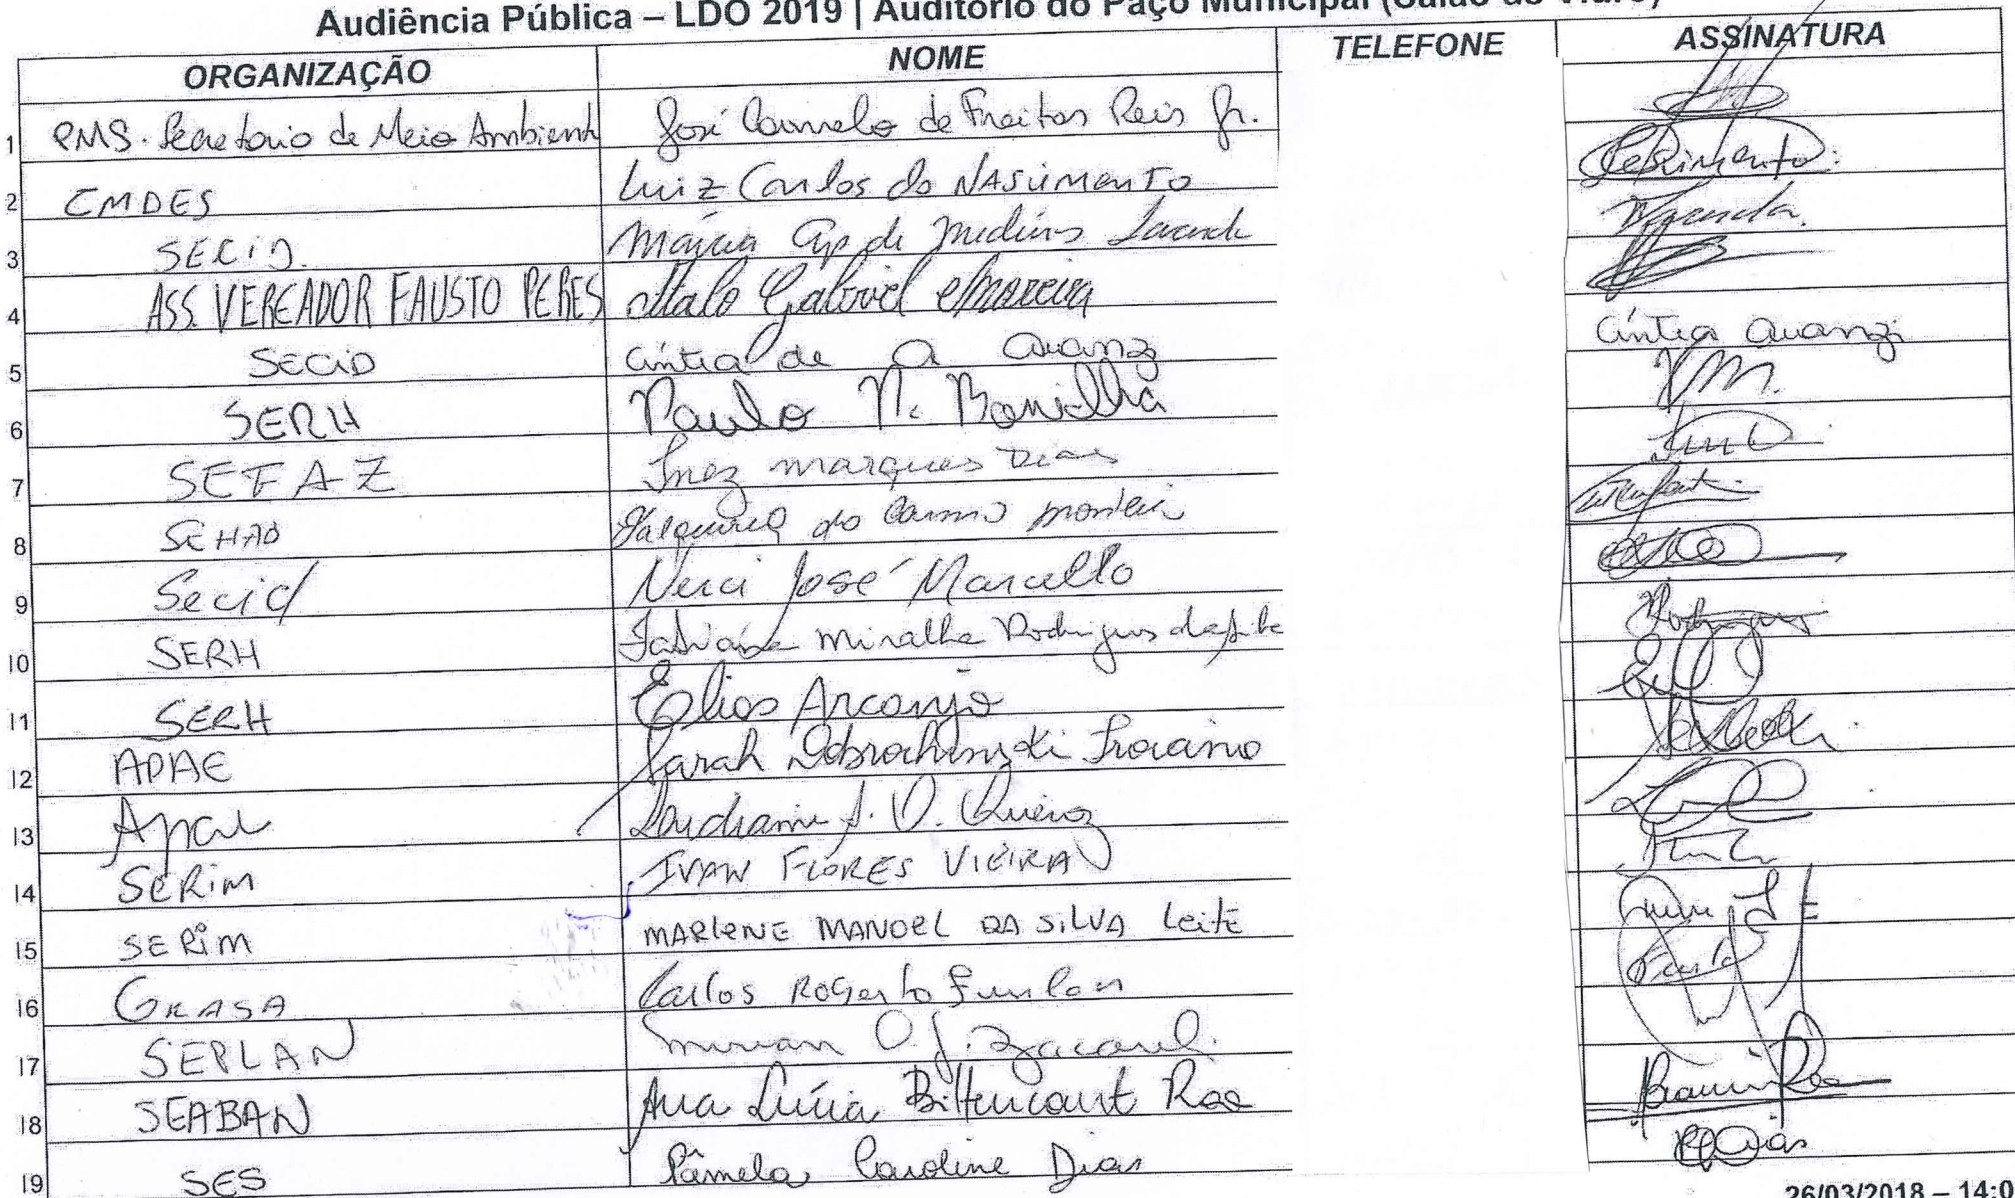 Audiência Pública – LDO 2019 | Auditório do Paço Municipal
ORGANIZAÇÃO NOME TELEFONE ASSINATURA
1 PMS. Secretario de Meio Ambient José Carmelo de Freitas Reis Jr.
2 CMDES Luiz Carlos do NASCIMENTO
3 SECID. Márcia Ap de
4 ASS. VEREADOR FAUSTO PERES Italo Gabriel Moreira
5 SECID Cíntia de A Avanz Cíntia Avanzi
6 SERH Paulo R. Bonilha
7 SEFAZ Inez marques Dias
8 SEHAB do Carmo
9 Secid Nerci José Marcello
10 SERH Fabiana Miralha Rodrigues Rodrigues
11 SERH Elias Arcanjo
12 APAE Sarah
13 Apae J. O. Queiroz
14 SERIM IVAN FLORES VIEIRA
15 SERIM MARLENE MANOEL DA SILVA Leite
16 GRASA Carlos Rogerto Furlan
17 SEPLAN
18 SEABAN Ana Lúcia Bittencourt
19 SES Pâmela Caroline Dias
26/03/2018 – 14:0